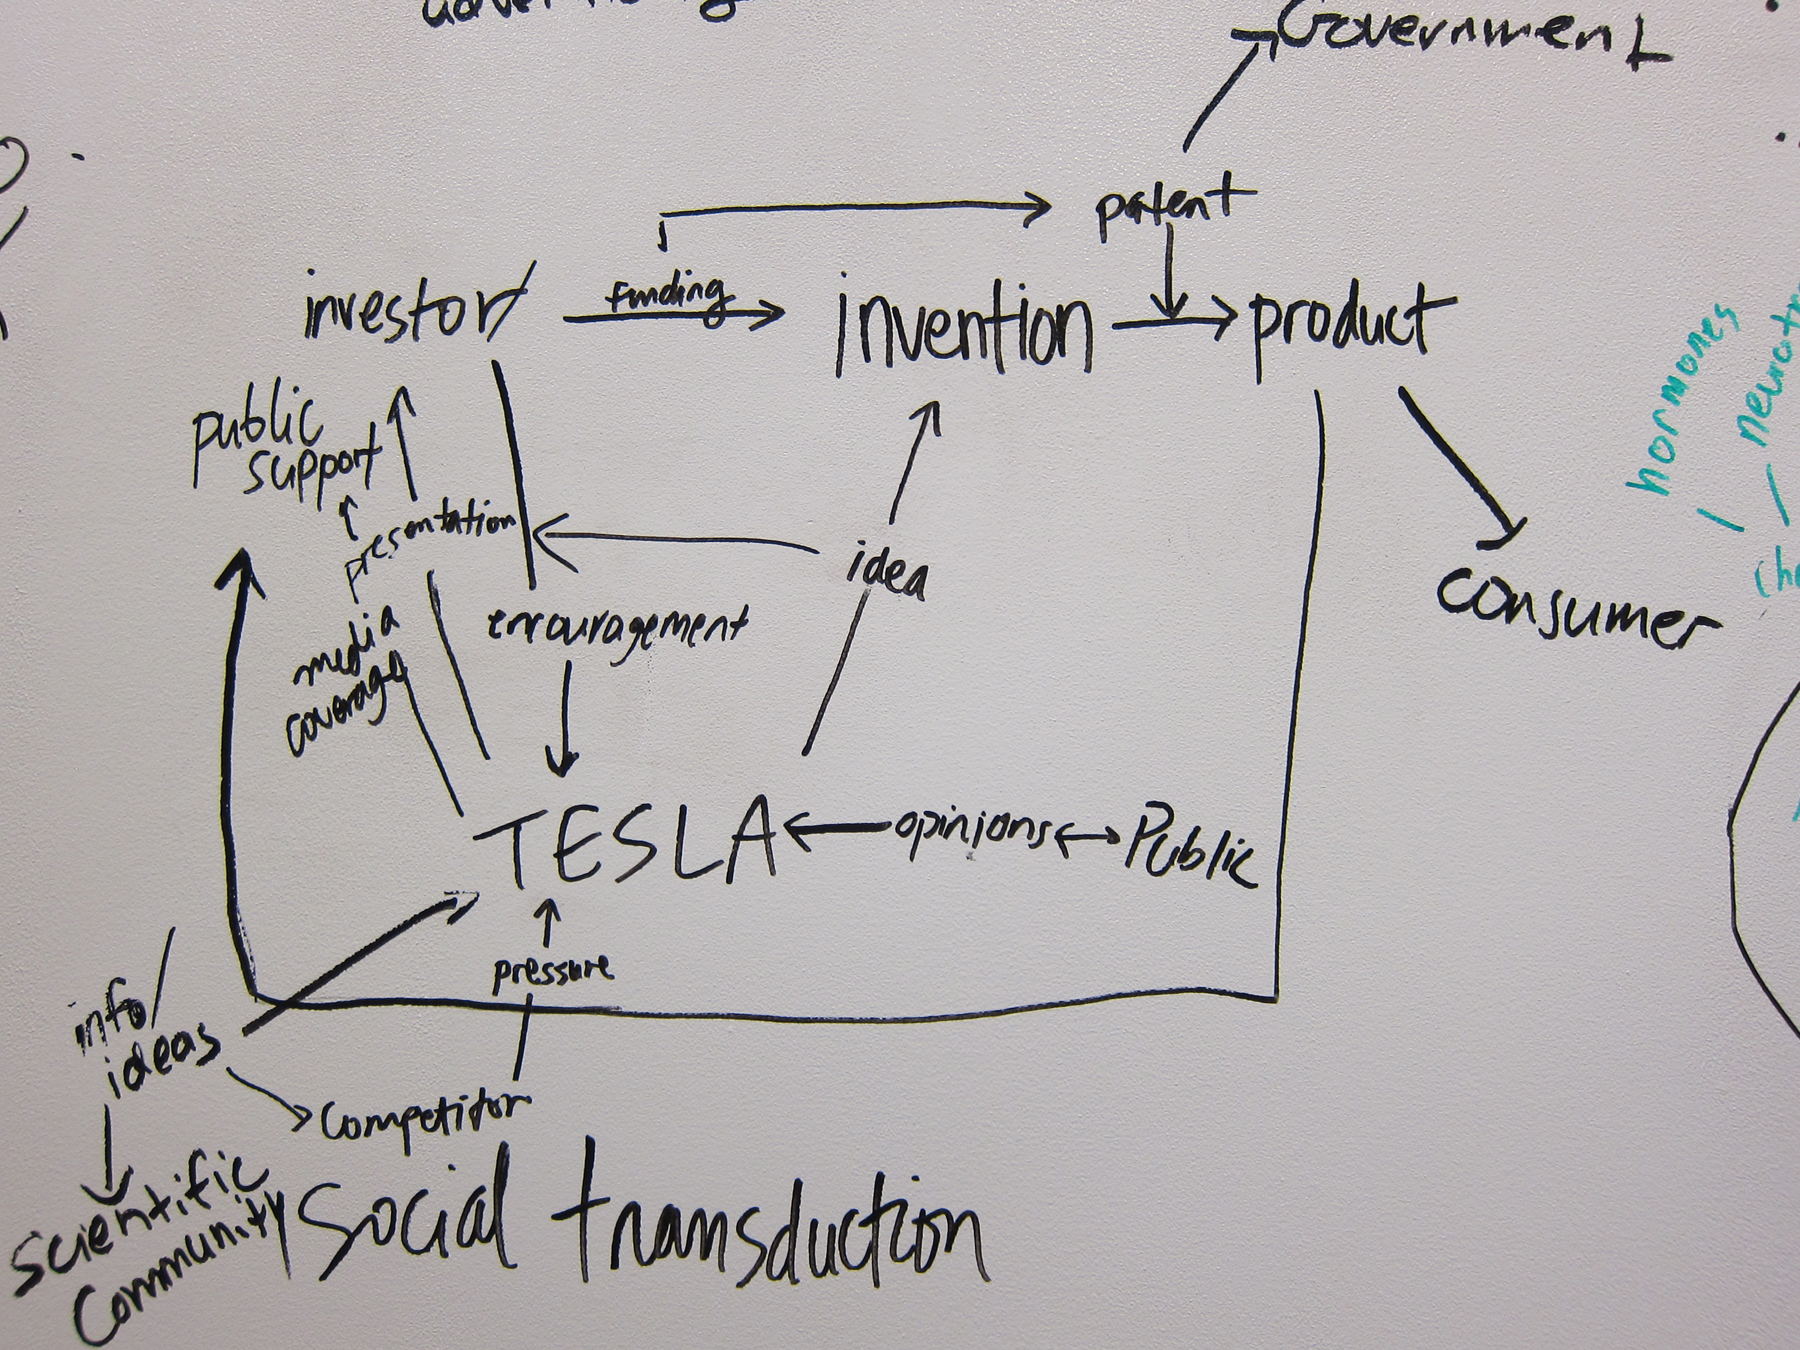 Government
patent
funding
investor/
invention
product
hormones
public
support
presentation
idea
media
coverage
encouragement
consumer
TESLA
opinions
Public
pressure
info/
ideas
competitor
scientific
community
social transduction